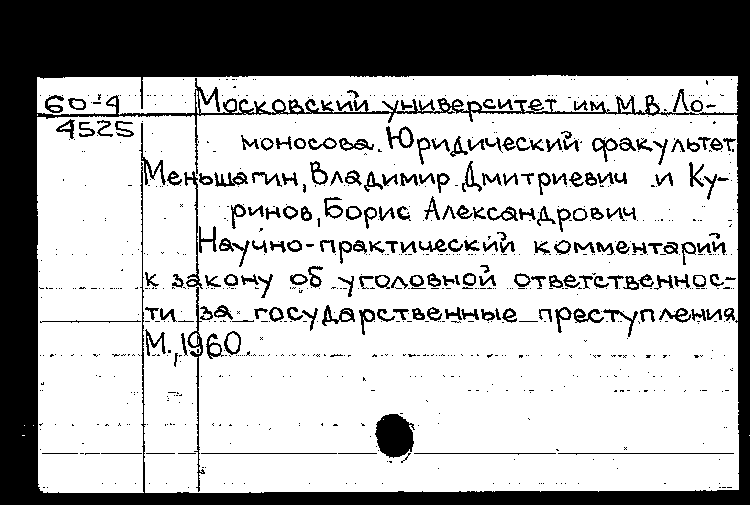 60-4
4525
Московский университет им. М.В. Ло-
моносова. Юридический факультет
Меньшагин, Владимир Дмитриевич и Ку-
ринов, Борис Александрович
Научно-практический комментарий
к закону об уголовной ответственнос-
ти за государственные преступления
М., 1960.